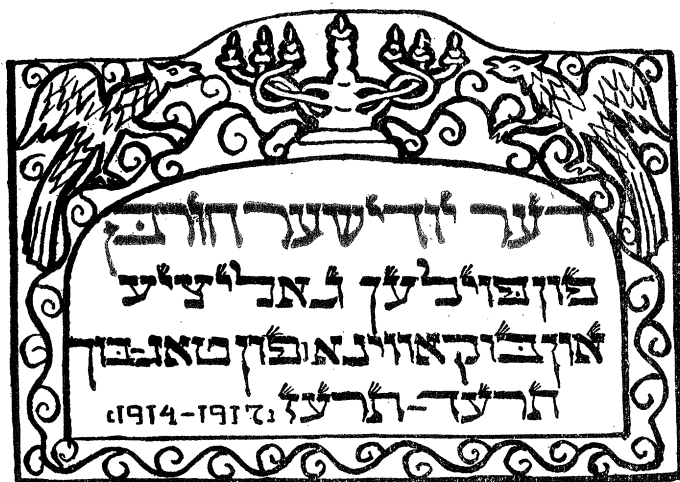 דער יודישער חורבן
פון פוילען גאליציע
און בוקאווינא, פון טאג-בוך
תרעד-תרעז (1914-1917)